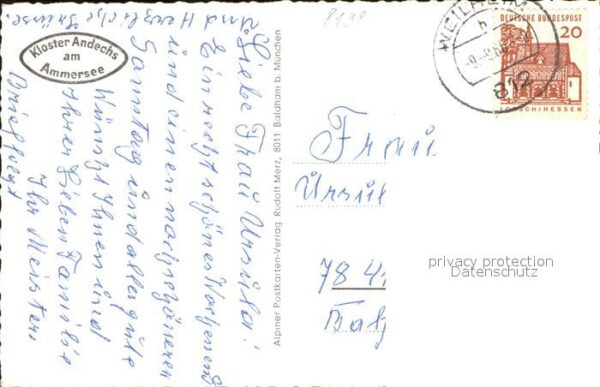 8138
Kloster Andechs
am
Ammersee
Liebe Frau Ursula!
Ein recht schönes Wochenend
und einen noch schöneren
Sonntag und alles gute
Wünscht Ihnen und
Ihrer lieben Familie
Ihr Meister
Brief folgt
und Herzliche Grüsse.
Alpiner Postkarten-Verlag Rudolf Merz, 8011 Baldham b. München
WEILHEIM
812
DEUTSCHE BUNDESPOST
20
LORSCH/HESSEN
Frau
Ursul
784
privacy protection
Datenschutz